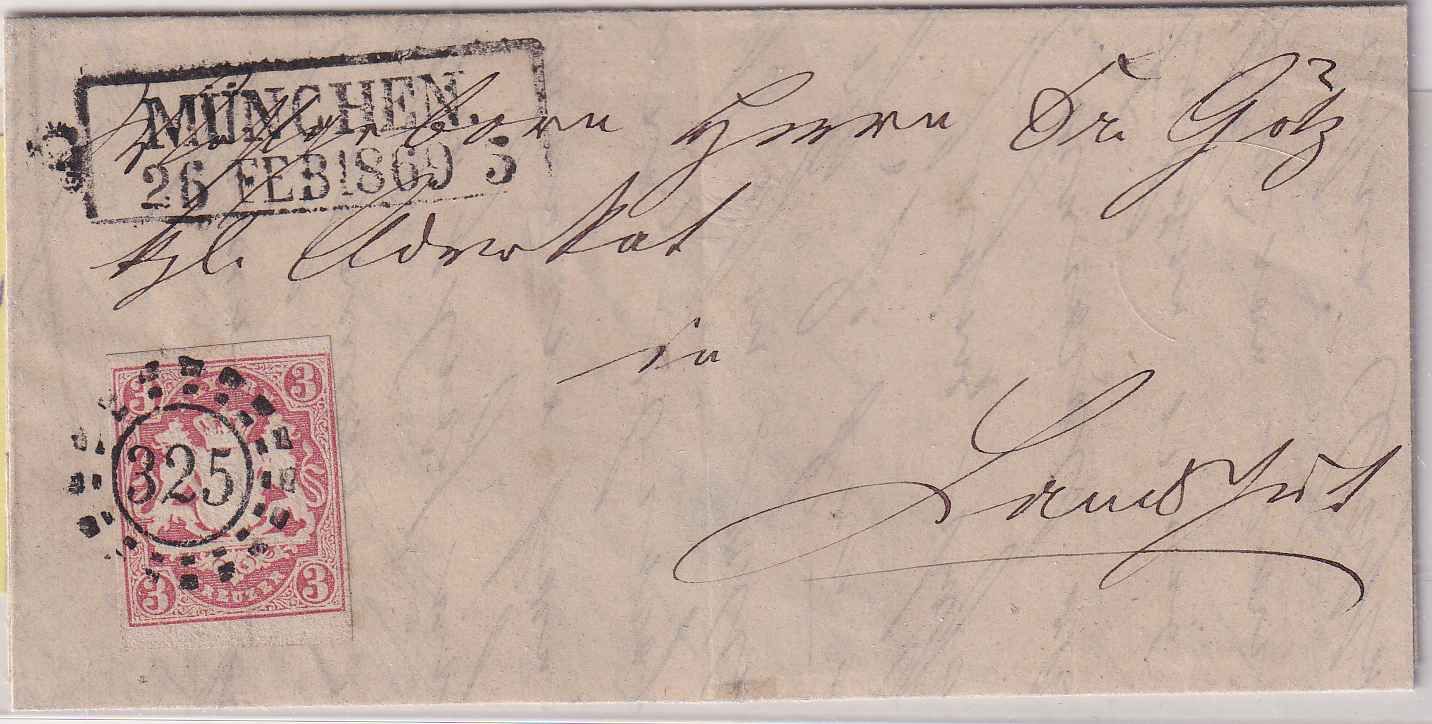 MÜNCHEN.
26 FEB 1869 5
Wohlgeborn Herrn Dr. Götz
kgl. Advokat
in
Landshut
3 3
325
3 3
KREUZER